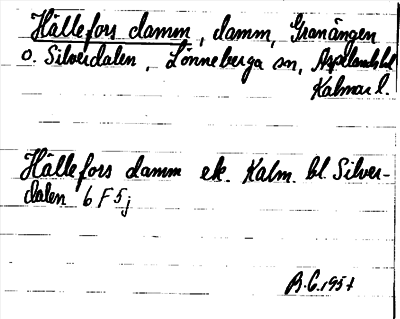 Hällefors damm, damm, Granängen
o. Silverdalen, Lönneberga sn, Aspelands hd
Kalmar l.
Hällefors damm ek. Kalm. bl. Silver-
dalen 6 F 5j
B.G. 1957